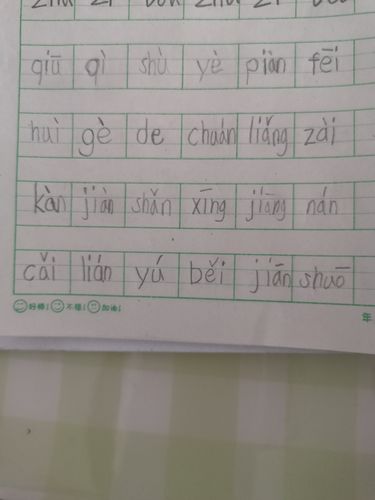 qiū qì shù yè piàn fēi
huì gè de chuán liǎng zài
kàn jiàn shǎn xīng jiāng nán
cǎi lián yú běi jiān shuō
好棒! 不错! 加油!
年